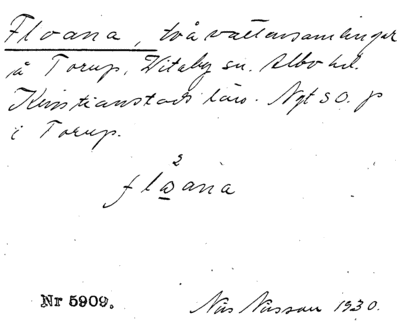 Floana, två vattensamlingar
å Torup, Vitaby sn. Albo hd.
Kristianstads län. Nyt so. p
i Torup.
2
floana
Nr 5909.
Nils Nilsson 1930.